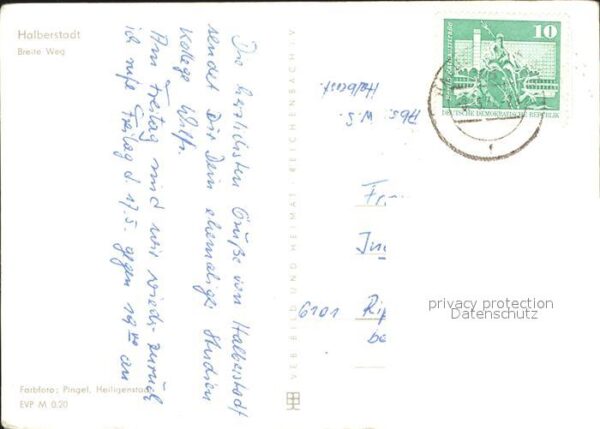 Halberstadt
Breite Weg
Die herzlichsten Grüße von Halberstadt
sendet Dir Dein ehemaliger Studien
kollege Wulf.
Am Freitag sind wir wieder zurück
ich rufe Freitag d 17.5. gegen 19⁰⁰ an
Farbfoto: Pingel, Heiligenstadt
EVP M 0,20
VEB BILD UND HEIMAT REICHENBACH I. V.
Abs. W.S.
Halberst.
10
DEUTSCHE DEMOKRATISCHE REPUBLIK
Fr
6101
privacy protection
Datenschutz